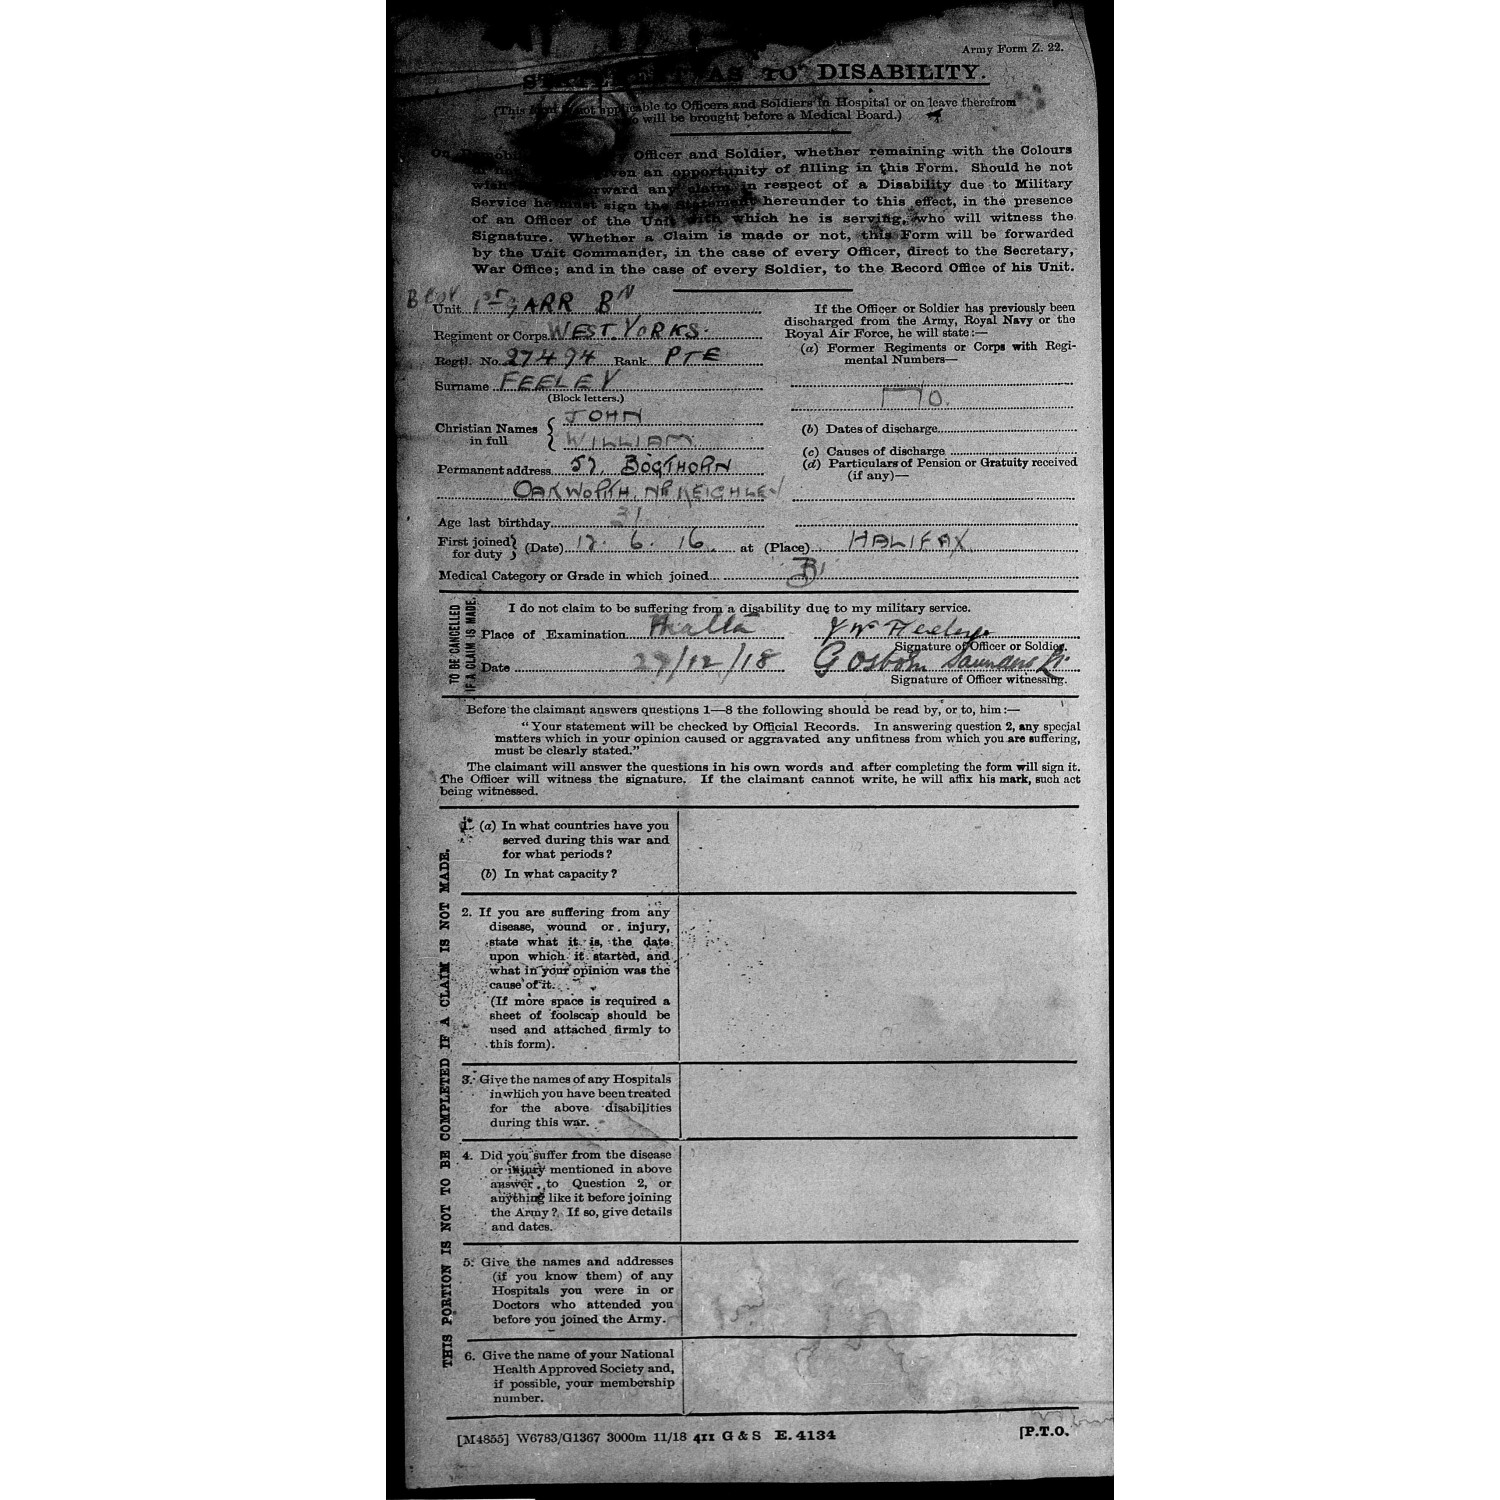 Army Form Z. 22.
STATEMENT AS TO DISABILITY.
(This form is not applicable to Officers and Soldiers in Hospital or on leave therefrom
who will be brought before a Medical Board.)
Officer and Soldier, whether remaining with the Colours
or not, given an opportunity of filling in this Form. Should he not
wish forward any claim in respect of a Disability due to Military
Service he must sign the Statement hereunder to this effect, in the presence
of an Officer of the Unit with which he is serving, who will witness the
Signature. Whether a Claim is made or not, this Form will be forwarded
by the Unit Commander, in the case of every Officer, direct to the Secretary,
War Office; and in the case of every Soldier, to the Record Office of his Unit.
Unit 1ST GARR BN
Regiment or Corps WEST. YORKS.
Regtl. No. 27494 Rank PTE
Surname FEELEY
(Block letters.)
Christian Names in full { JOHN
WILLIAM
Permanent address 57, BOGTHORN
OAKWORTH, NR KEIGHLEY
Age last birthday 31
First joined for duty } (Date) 12. 6. 16 at (Place) HALIFAX
Medical Category or Grade in which joined B1
If the Officer or Soldier has previously been
discharged from the Army, Royal Navy or the
Royal Air Force, he will state:—
(a) Former Regiments or Corps with Regi-
mental Numbers—
NO.
(b) Dates of discharge
(c) Causes of discharge
(d) Particulars of Pension or Gratuity received
(if any)—
TO BE CANCELLED
IF A CLAIM IS MADE.
I do not claim to be suffering from a disability due to my military service.
Place of Examination Malta J W Feeley
Signature of Officer or Soldier.
Date 27/12/18 G Osborn Saunders Lt.
Signature of Officer witnessing.
Before the claimant answers questions 1—8 the following should be read by, or to, him:—
"Your statement will be checked by Official Records. In answering question 2, any special
matters which in your opinion caused or aggravated any unfitness from which you are suffering,
must be clearly stated."
The claimant will answer the questions in his own words and after completing the form will sign it.
The Officer will witness the signature. If the claimant cannot write, he will affix his mark, such act
being witnessed.
THIS PORTION IS NOT TO BE COMPLETED IF A CLAIM IS NOT MADE.
1. (a) In what countries have you
served during this war and
for what periods?
(b) In what capacity?
2. If you are suffering from any
disease, wound or injury,
state what it is, the date
upon which it started, and
what in your opinion was the
cause of it.
(If more space is required a
sheet of foolscap should be
used and attached firmly to
this form).
3. Give the names of any Hospitals
in which you have been treated
for the above disabilities
during this war.
4. Did you suffer from the disease
or injury mentioned in above
answer to Question 2, or
anything like it before joining
the Army? If so, give details
and dates.
5. Give the names and addresses
(if you know them) of any
Hospitals you were in or
Doctors who attended you
before you joined the Army.
6. Give the name of your National
Health Approved Society and,
if possible, your membership
number.
[M4855] W6783/G1367 3000m 11/18 411 G & S E. 4134
[P.T.O.